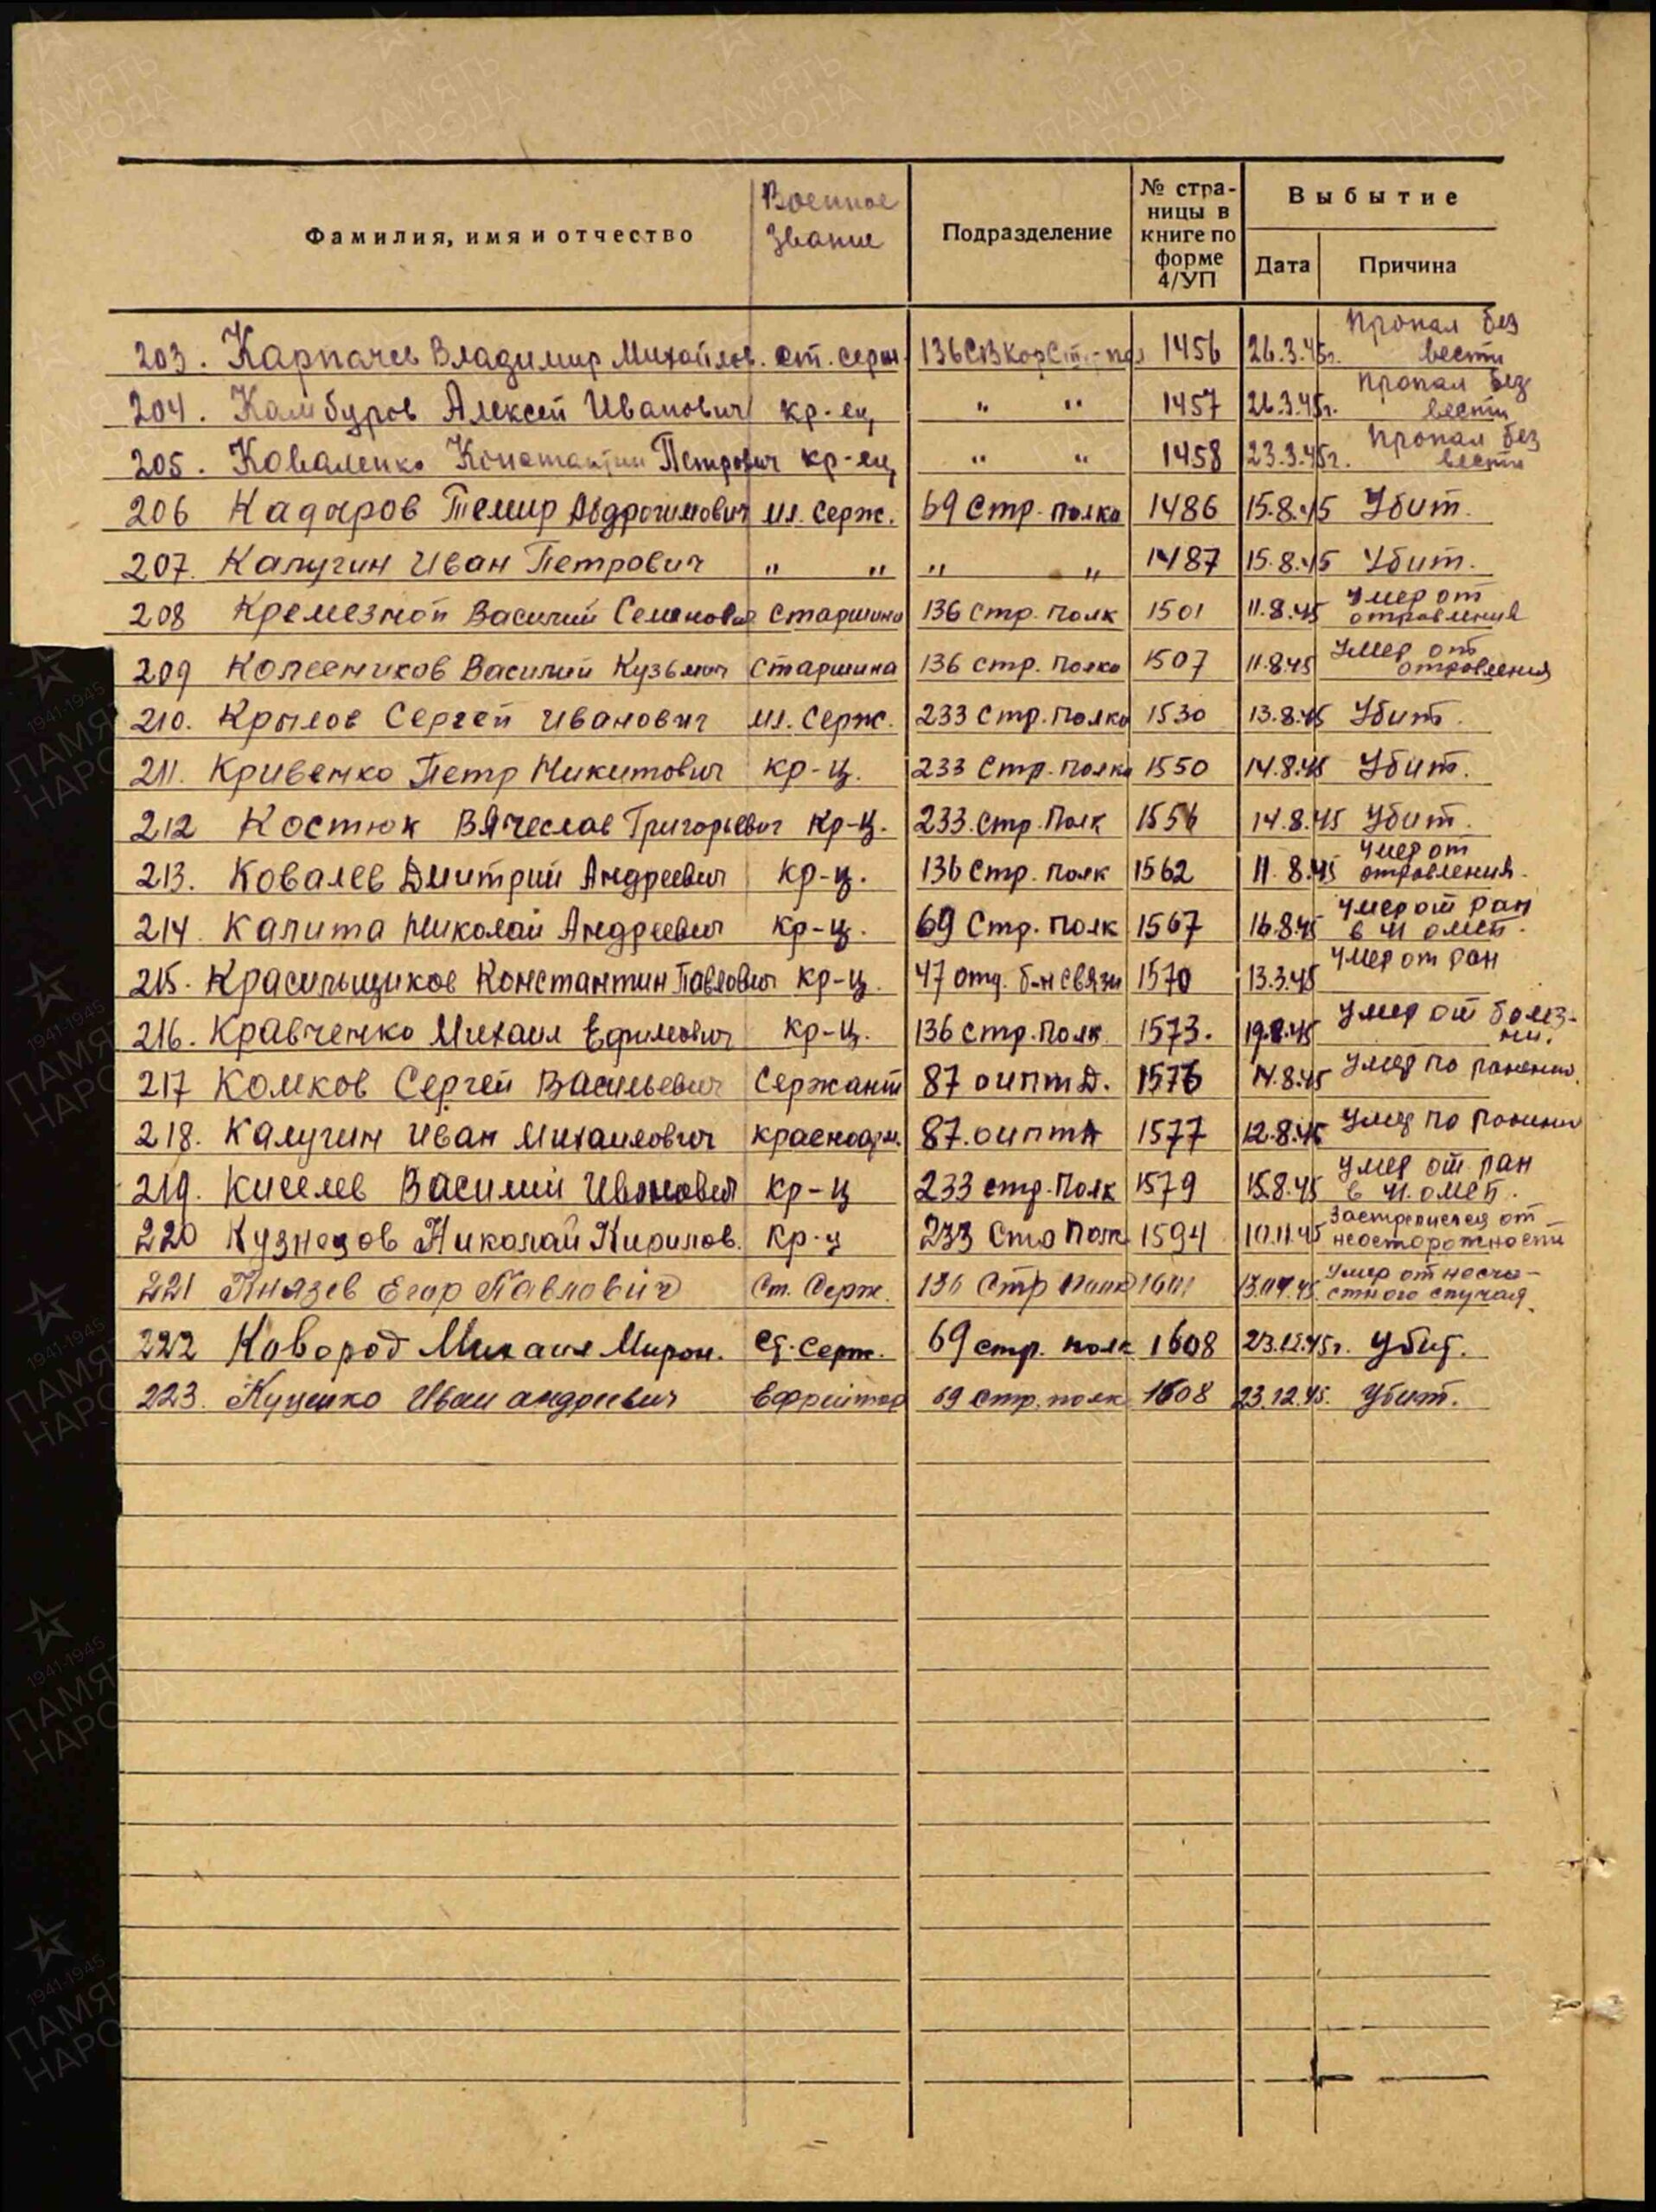 Фамилия, имя и отчество
Военное звание
Подразделение
№ стра-
ницы в
книге по
форме
4/УП
Выбытие
Дата
Причина
203. Карпачев Владимир Михайлов. ст. серж. 136 1456 26.3.45г. Пропал без вести
204. Камбуров Алексей Иванович кр-ец " " 1457 26.3.45г. Пропал без вести
205. Коваленко Константин Петрович кр-ец " " 1458 23.3.45г. Пропал без вести
206 Кадыров Темир мл. серж. 69 Стр. полка 1486 15.8.45 Убит.
207. Калугин Иван Петрович " " " " 1487 15.8.45 Убит.
208 Кремезной Василий Семенович Старшина 136 Стр. Полк 1501 11.8.45 Умер от отравления
209 Василий Кузьмич Старшина 136 стр. Полка 1507 11.8.45 Умер от отравления
210. Крылов Сергей Иванович мл. Серж. 233 Стр. Полка 1530 13.8.45 Убит.
211. Кривенко Петр Никитович кр-ц. 233 Стр. полка 1550 14.8.45 Убит.
212 Костюк Вячеслав Григорьевич кр-ц. 233 Стр. Полк 1556 14.8.45 Убит.
213. Ковалев Дмитрий Андреевич кр-ц. 136 Стр. полк 1562 11.8.45 Умер от отравления.
214. Калита Николай Андреевич кр-ц. 69 Стр. полк 1567 16.8.45 Умер от ран в
215. Красильщиков Константин Павлович кр-ц. 47 отд. б-н связи 1570 13.3.45 Умер от ран
216. Кравченко Михаил Ефимович кр-ц. 136 стр. Полк 1573. 19.8.45 Умер от болез-
ни.
217 Комков Сергей Васильевич Сержант 87 оиптд. 1576 14.8.45 Умер по
218. Калугин Иван Михайлович красноарм. 87. оиптд 1577 12.8.45 Умер по
219. Киселев Василий Иванович кр-ц 233 стр. Полк 1579 15.8.45 Умер от ран в
220 Кузнецов Николай Кирилов. кр-ц 233 Стр Полк 1594 10.11.45 Застрелился от неосторожности
221 Князев Егор Павлович Ст. Серж. 136 Стр Полк Умер от несча-
стного случая.
222 Ковород Михаил Мирон. Ст. Серж. 69 стр. полк 1608 23.12.45г. Убит.
223. Куценко Иван Андреевич Ефрейтор 69 стр. полк 1608 23.12.45. Убит.
ПАМЯТЬ НАРОДА
1941-1945